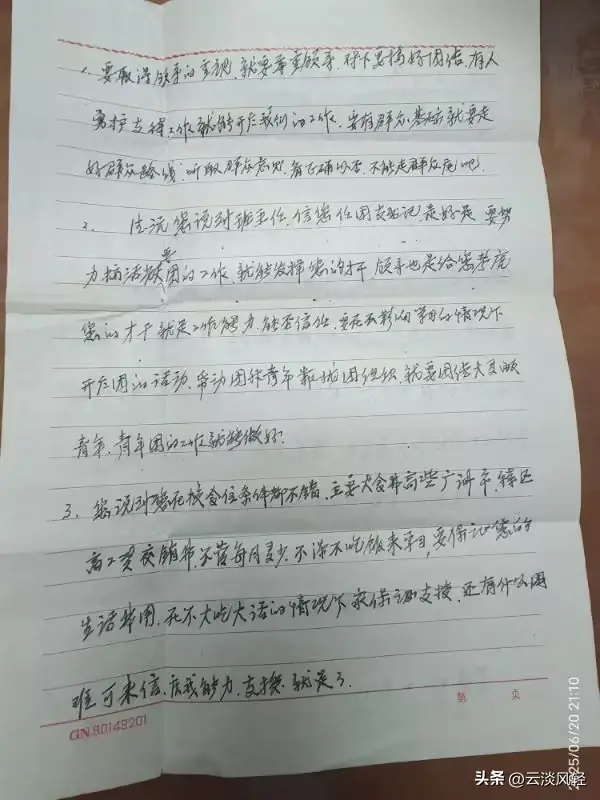 1. 要取得领导的重视,就要尊重领导,对下要搞好团结,有人
要护支持,工作就能开展我们的工作,要有群众基础就要走
好群众路线,听取群众意见,看正确以否,不能走群众尾巴。
2. 生活您说到班主任,信您任团支书记是好是 要努
力搞活跃要团的工作,就能发挥您的才干 领导也是给您考虑
您的才干就是工作能力,能否信任,要在不影响学习的情况下
开展团的活动,带动团结青年靠拢团组织,就要团结大多数
青年,青年团的工作就能做好.
3. 您说到您在校食住条件都不错,主要大食
高工资 不管每月多少,不得不吃饭来学习,要保证您的
生活费用,在不大吃大活的情况下 保证支援,还有什么困
难可来信,尽我能力,支援就是了.
第 页
GN 90149201
2025/06/20 21:10
头条 @云淡风轻